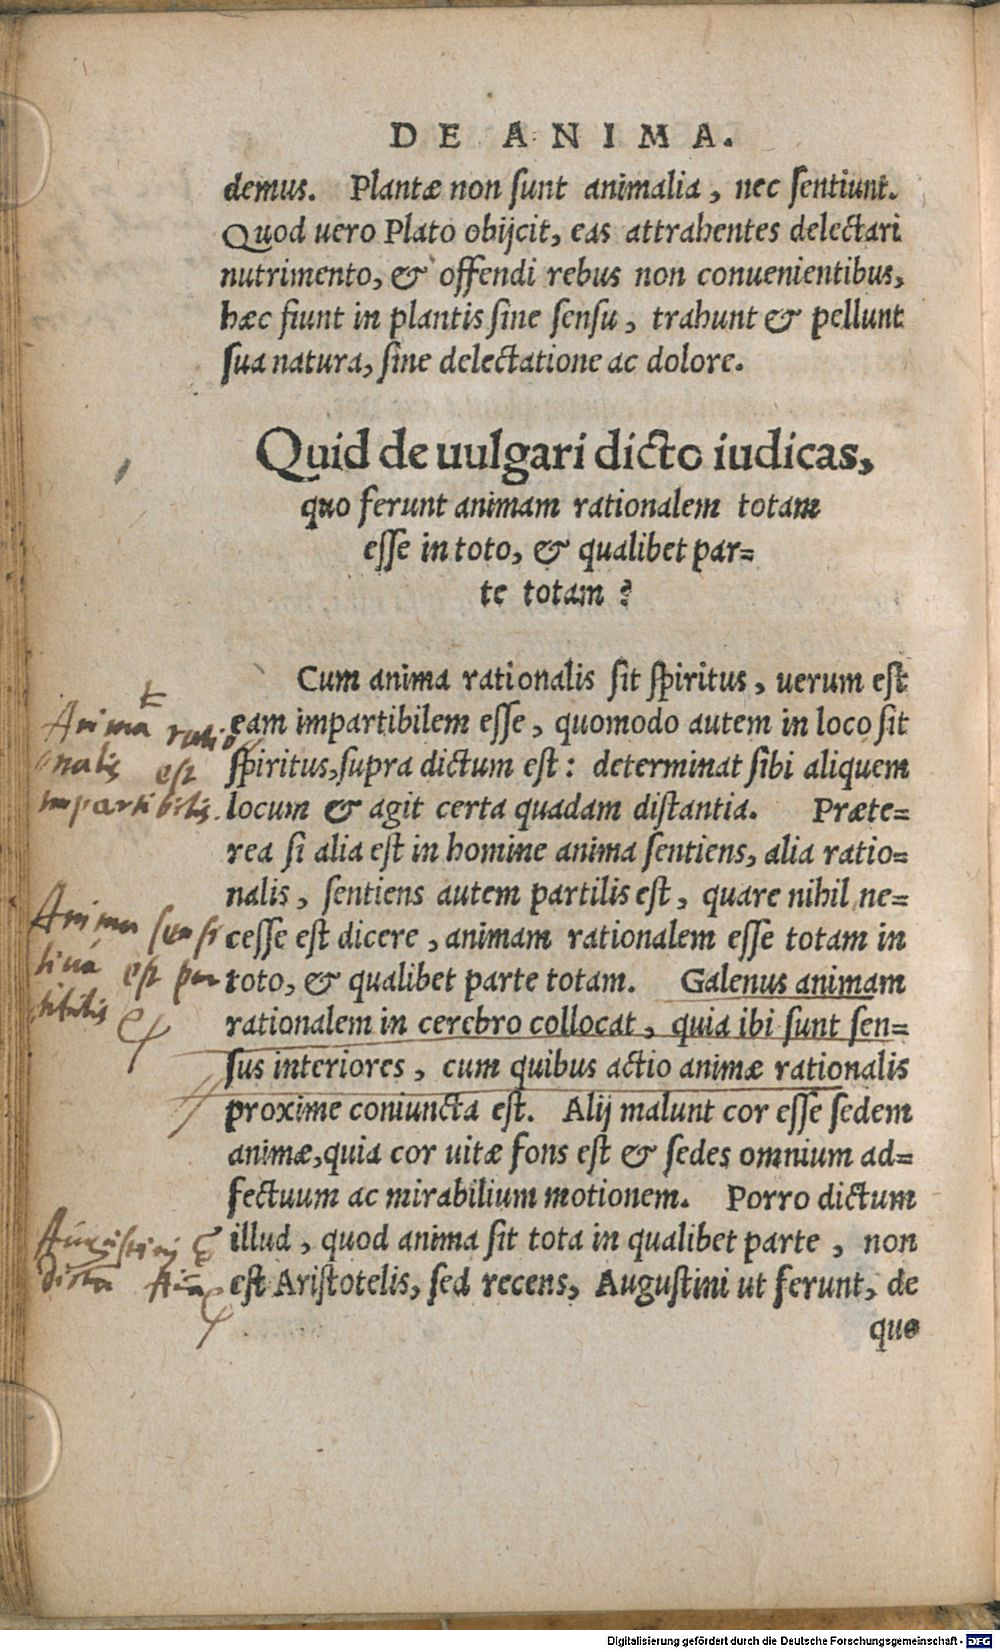 DE ANIMA.
demus. Plantæ non sunt animalia, nec sentiunt.
Quod uero Plato obijcit, eas attrahentes delectari
nutrimento, & offendi rebus non conuenientibus,
hæc fiunt in plantis sine sensu, trahunt & pellunt
sua natura, sine delectatione ac dolore.
Quid de uulgari dicto iudicas,
quo ferunt animam rationalem totam
esse in toto, & qualibet par=
te totam?
Cum anima rationalis sit spiritus, uerum est
eam impartibilem esse, quomodo autem in loco sit
spiritus, supra dictum est: determinat sibi aliquem
locum & agit certa quadam distantia. Præte=
rea si alia est in homine anima sentiens, alia ratio=
nalis, sentiens autem partilis est, quare nihil ne=
cesse est dicere, animam rationalem esse totam in
toto, & qualibet parte totam. Galenus animam
rationalem in cerebro collocat, quia ibi sunt sen=
sus interiores, cum quibus actio animæ rationalis
proxime coniuncta est. Alij malunt cor esse sedem
animæ, quia cor uitæ fons est & sedes omnium ad=
fectuum ac mirabilium motionem. Porro dictum
illud, quod anima sit tota in qualibet parte, non
est Aristotelis, sed recens, Augustini ut ferunt, de
quo
Anima ratio
onalis est
impartibilis.
Anima sensi
tiua est par
titilis
Augustini
dicta
Digitalisierung gefördert durch die Deutsche Forschungsgemeinschaft - DFG